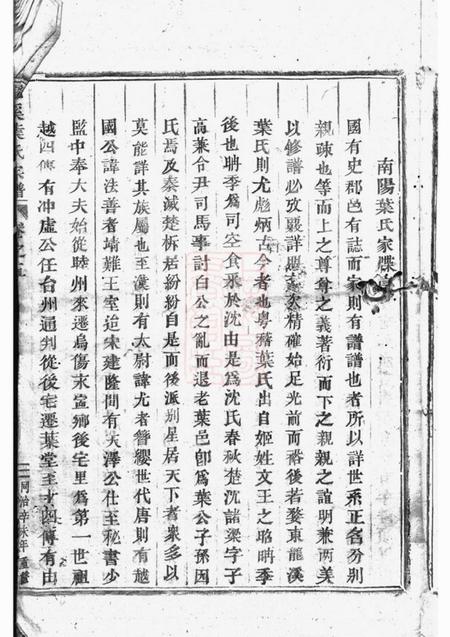 南陽葉氏家牒
國有史郡邑有誌而家則有譜譜也者所以詳世系正名分別
親疎也等而上之尊尊之義著衍而下之親親之誼明兼兩美
以修譜必攷覈詳悉 次精確始足光前而裕後若婺東龍溪
葉氏則尤彪炳古今者也粵稽葉氏出自姬姓文王之昭聃季
後也聃季爲司空食采於沈由是爲沈氏春秋楚沈諸梁字子
高兼令尹司馬事討白公之亂而退老葉邑卽爲葉公子孫因
氏焉及秦滅楚柝居紛紛自是而後派別星居天下者衆多以
莫能詳其族屬也至漢則有太尉諱尤者簪纓世代唐則有越
國公諱法善者靖難王室迨宋建隆間有天澤公仕至秘書少
監中奉大夫始從睦州來遷烏傷永宣鄉後宅里爲第一世祖
越四傳有冲虛公任台州通判從後宅遷葉堂王十四傳有由
溪葉氏宗譜
同治辛未年重